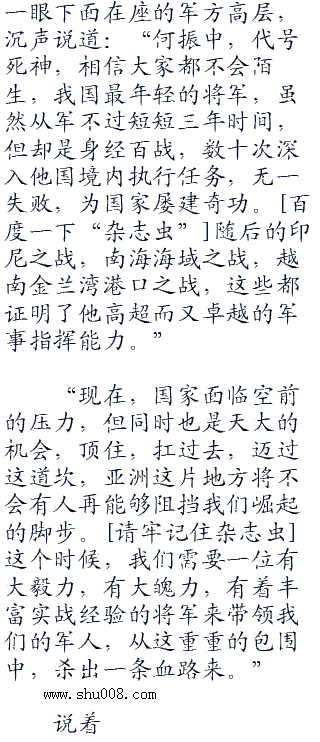 一眼下面在座的军方高层，
沉声说道：“何振中，代号
死神，相信大家都不会陌
生，我国最年轻的将军，虽
然从军不过短短三年时间，
但却是身经百战，数十次深
入他国境内执行任务，无一
失败，为国家屡建奇功。[百
度一下“杂志虫”]随后的印
尼之战，南海海域之战，越
南金兰湾港口之战，这些都
证明了他高超而又卓越的军
事指挥能力。”
“现在，国家面临空前
的压力，但同时也是天大的
机会，顶住，扛过去，迈过
这道坎，亚洲这片地方将不
会有人再能够阻挡我们崛起
的脚步。[请牢记住杂志虫]
这个时候，我们需要一位有
大毅力，有大魄力，有着丰
富实战经验的将军来带领我
们的军人，从这重重的包围
中，杀出一条血路来。”
www.shu008.com
说着